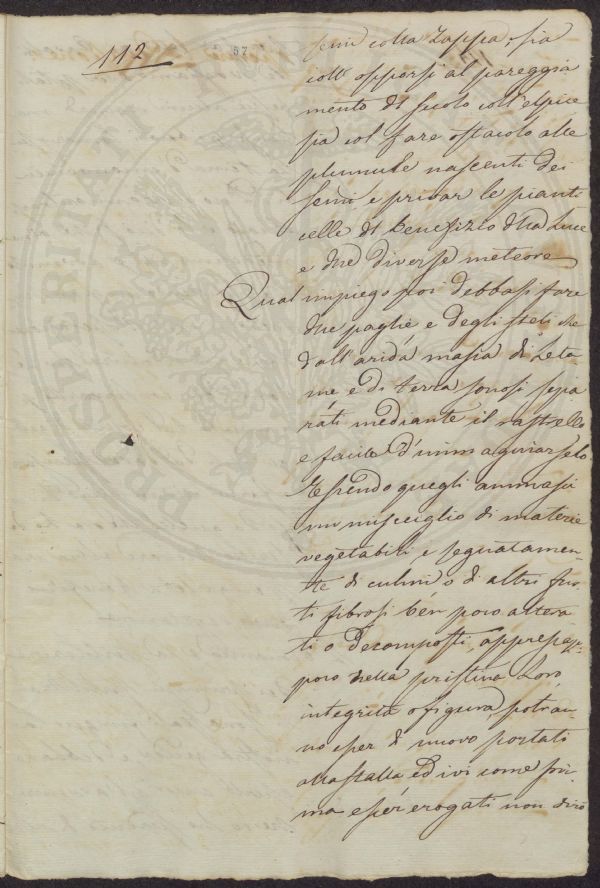 112
57
semi colla Zappa, sia
coll' opporsi al pareggia
mento di suolo coll' elpice
sia col fare ostacolo alle
plumule nascenti dei
semi e privar le pianti
celle di benefizio della Luce
e delle diverse meteore
Qual impiego poi debbasi fare
delle paglie e degli steli che
dall' arida massa di Leta
me e di terra sonosi sepa
rati mediante il rastrello
e facile d'immaginarselo.
Essendo quegli ammassi
un miscuglio di materie
vegetabili, e segnatamen-
te di culmi o di altri fus
ti fibrosi ben poco altera
ti o decomposti, appresap-
poco nella pristina Loro
integrità o figura, potran-
no esser di nuovo portati
alla stalla ed ivi come pri-
ma esser erogati non dirò
PROSPERINAT